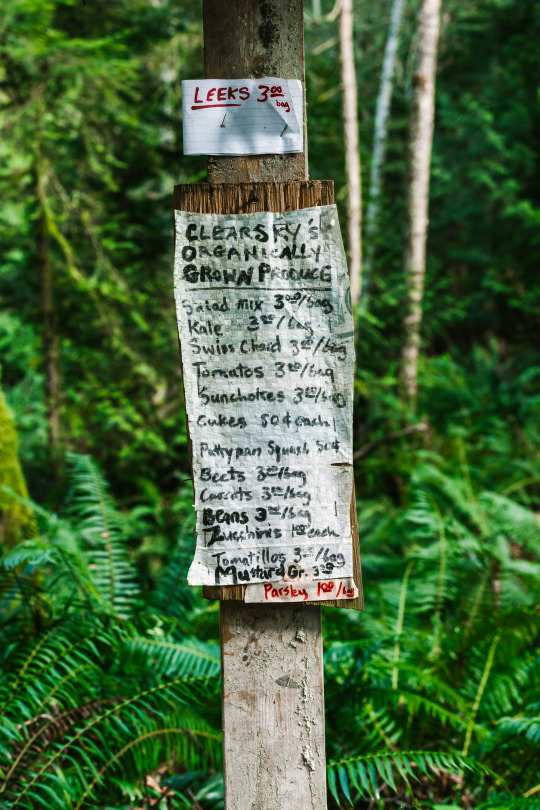 LEEKS 3⁰⁰
bag
CLEARSKY'S
ORGANICALLY
GROWN PRODUCE
Salad mix 3⁰⁰/bag
Kale 3⁰⁰/bag
Swiss Chard 3⁰⁰/bag
Tomatos 3⁰⁰/bag
Sunchokes 3⁰⁰/bag
Cukes 50¢ each
Pattypan Squash 50¢
Beets 3⁰⁰/bag
Carrots 3⁰⁰/bag
Beans 3⁰⁰/bag
Zucchinis 1⁰⁰ each
Tomatillos 3⁰⁰/bag
Mustard Gr. 3⁰⁰
Parsley 1⁰⁰/